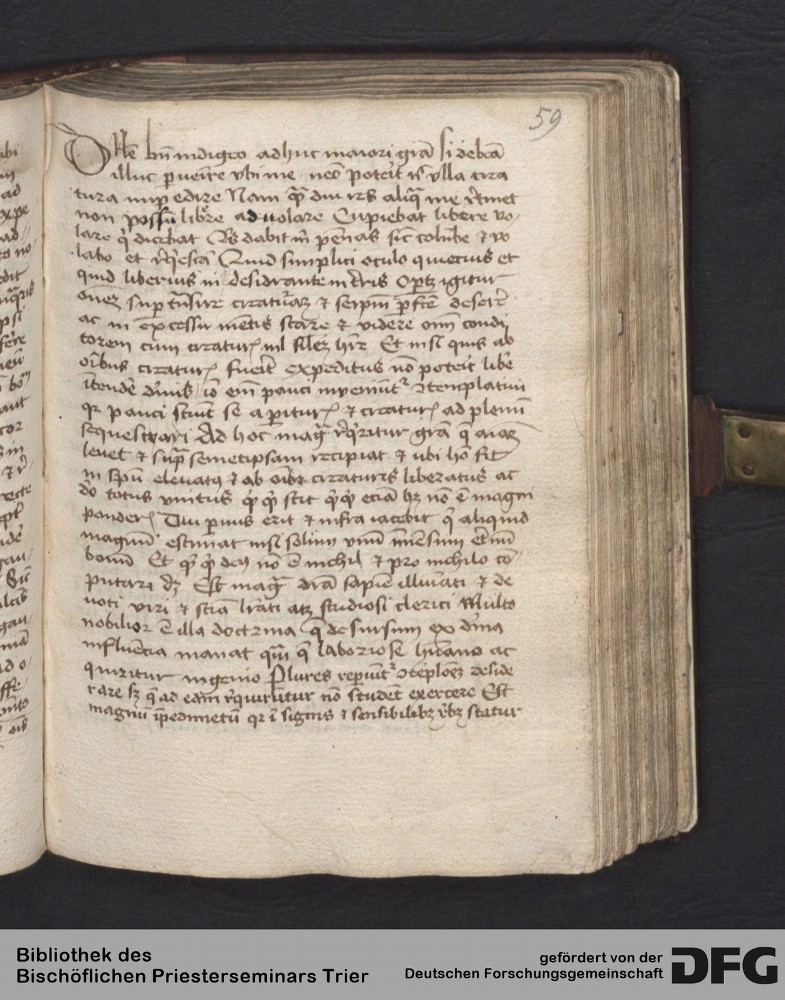 59
Dne bn indigeo adhuc maiori gra si debea
illuc puenire vbi me neo poterit n vlla crea
tura impedire Nam q diu res aliq me retinet
non possu libere ad volare Cupiebat libere vo-
lare q dicebat Qs dabit m pennas sic colube & vo
labo et reqesca Quid simplici oculo quiecius et
quid liberius nil desiderante in tris Optz igitur
omnez sup transire creaturaz & seipm pfte deserere
ac in excessu mentis stare & videre omi condi
torem cum creaturis nil silez hre Et nisi quis ab
oibus creaturis fuerit expeditus no poterit libe
itende diuis io eni pauci inveniunt 9templatiui
qr pauci sciut se a perituris & creaturis ad plenu
sequestrari Ad hoc mag reqritur gra q aiaz
levet & supra semetipsam recipiat & nisi ho sit
in spu eleuatus & ab oibz creaturis liberatus ac
do totus vnitus qcqd scit qcqd ecia hz no e magni
ponderis Diu puus erit & infra iacebit q aliquid
magnu estimat nisi solum vnu inmensum eternu
bonu Et qcqd deus no e nichil & pro nichilo co-
putari dz Est mag dria sapien illuiati & de
uoti viri & scia lrati atz studiosi clerici Multo
nobilior e illa doctrina q desursum ex diuina
influencia manat qua q laboriose humano ac
quiritur ingenio Plures reperiut 9teploez deside
rare sz q ad eam requirutur no student exercere Est
magnu ipedimetu qr i signis & sensibilibz rebz statur
Bibliothek des
Bischöflichen Priesterseminars Trier
gefördert von der
Deutschen Forschungsgemeinschaft
DFG